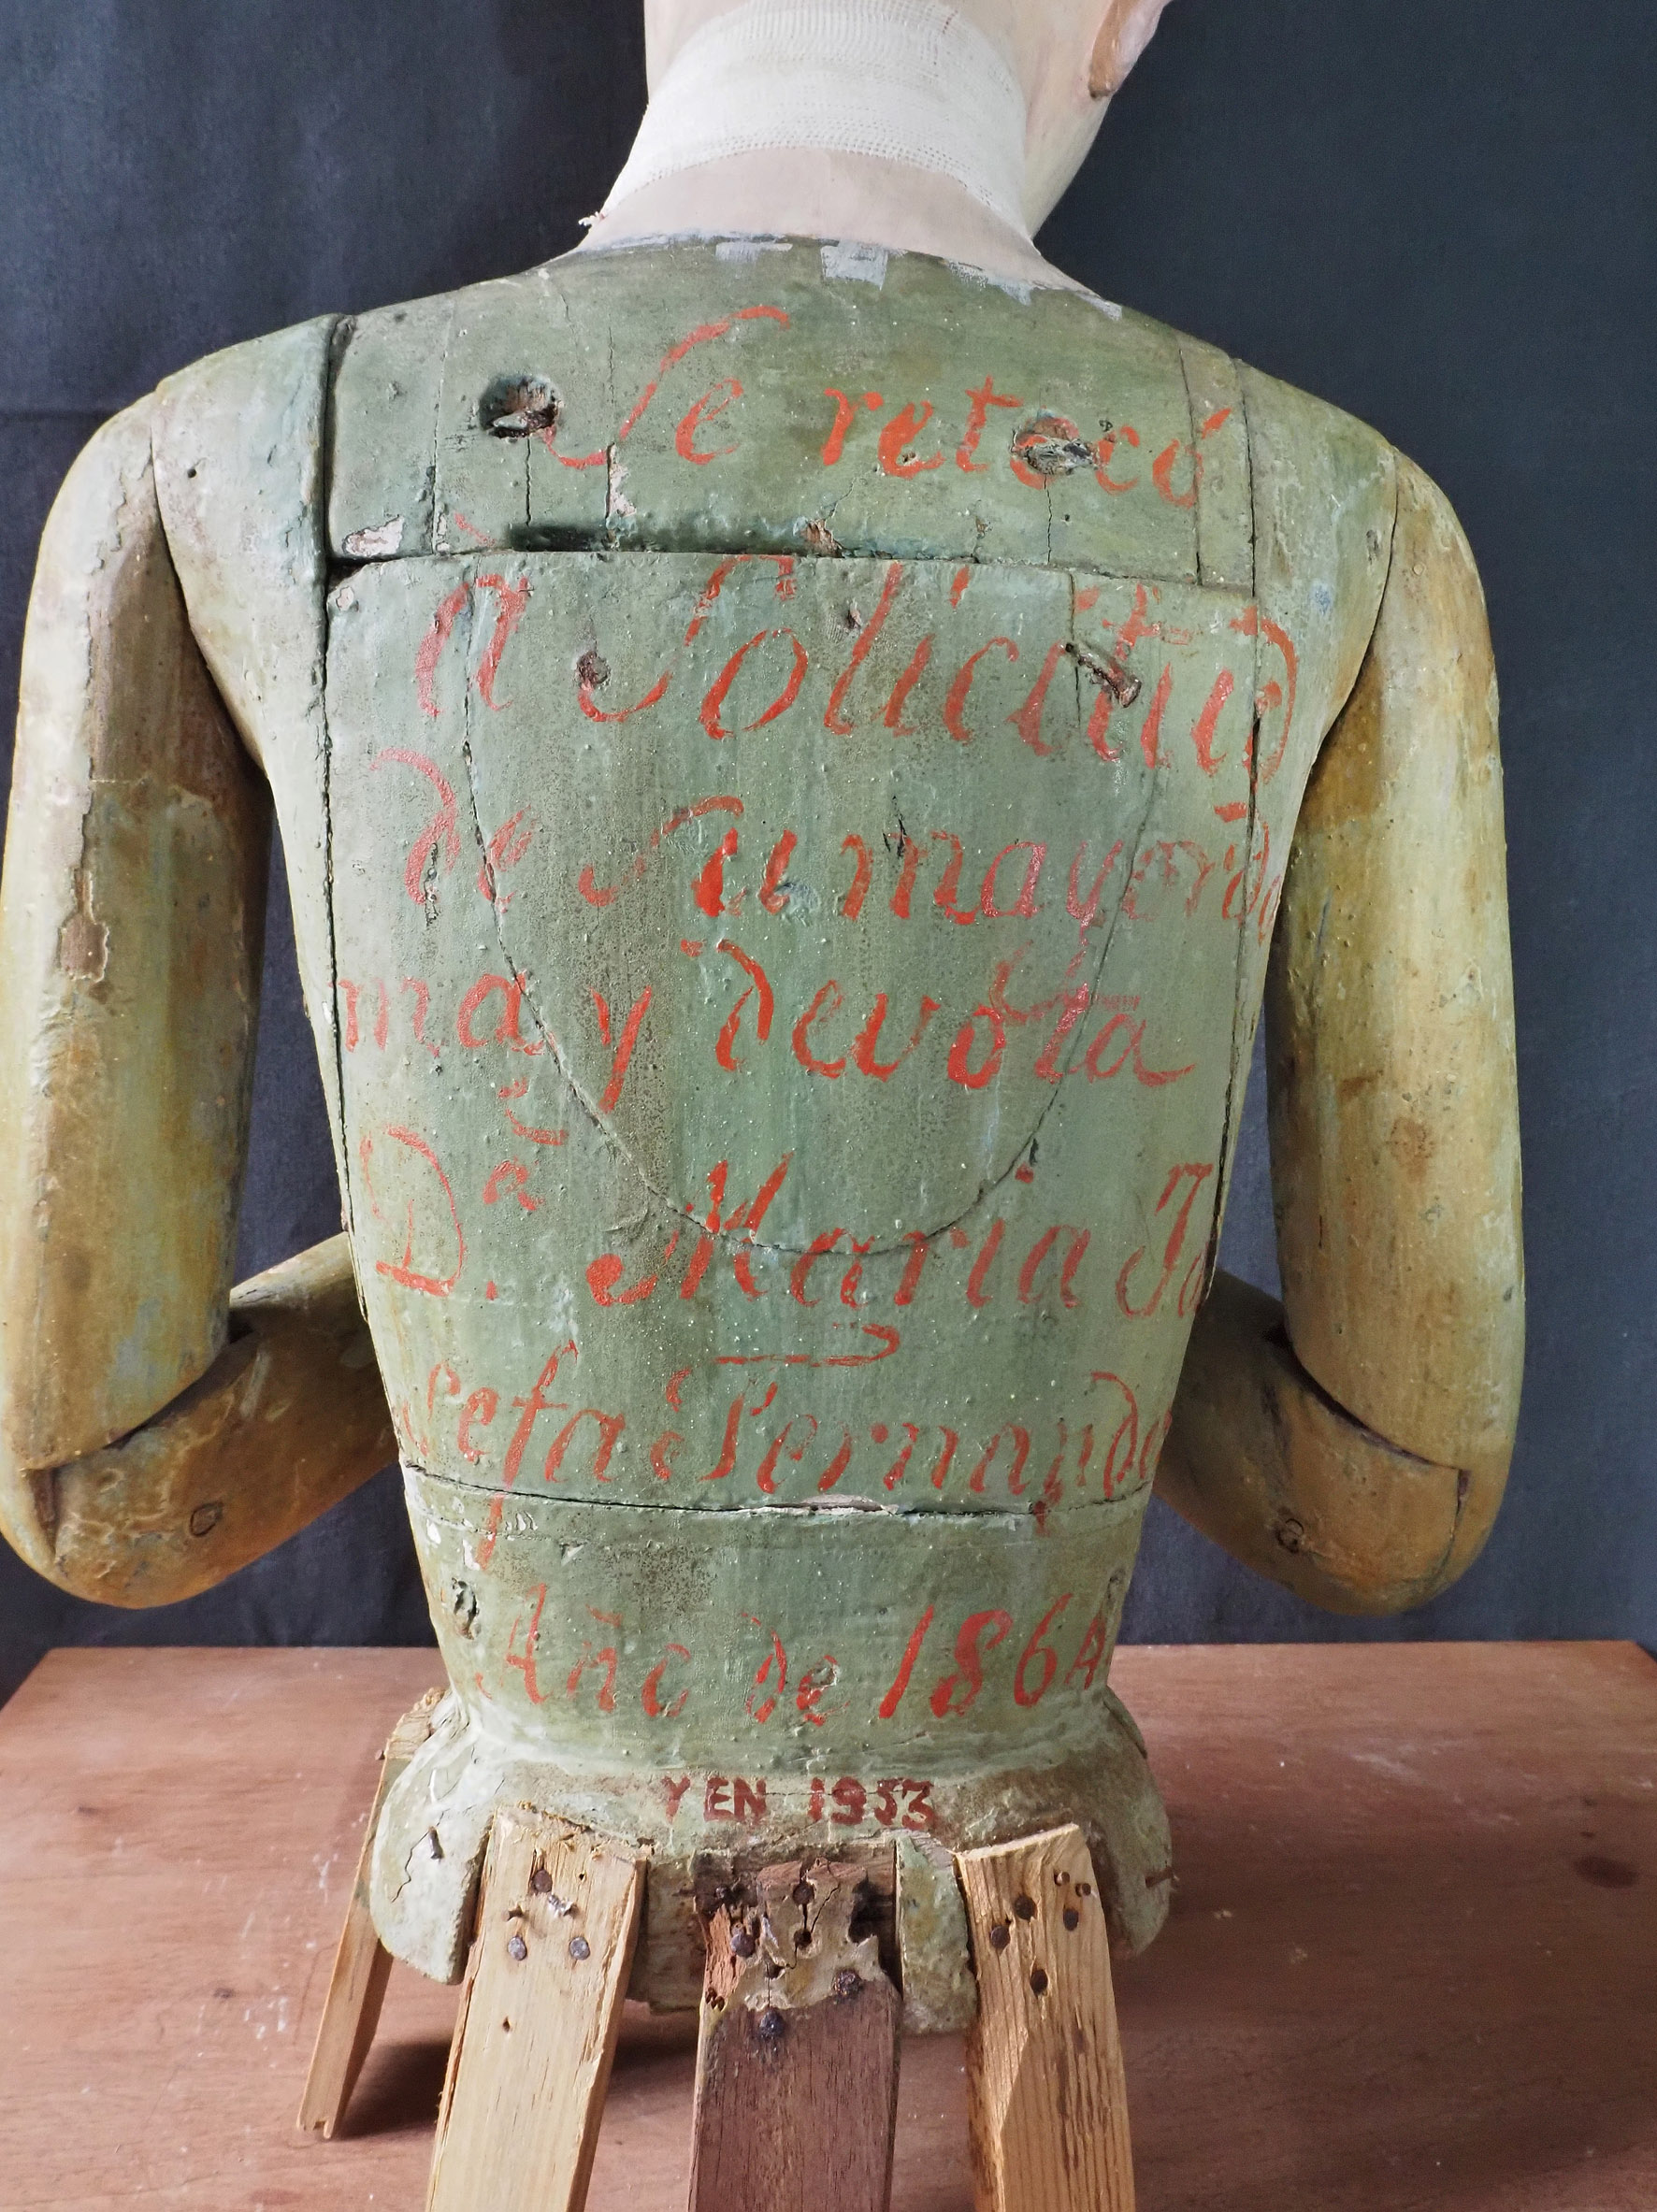 Se retocó
a Solicitud
de Su mayordo
ma y devota
D.ª Maria Jo
sefa Fernande
Año de 1864
Y EN 1953